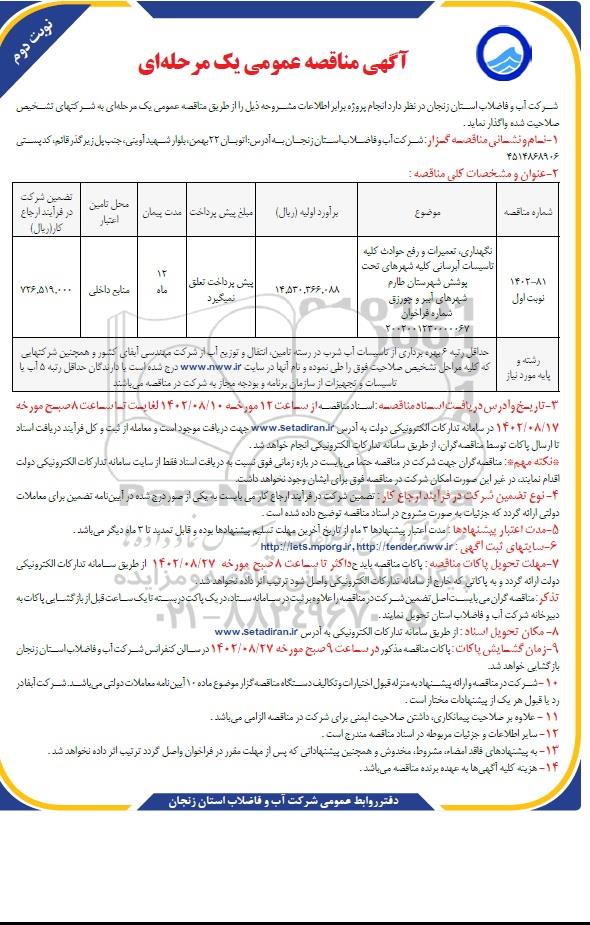 نوبت دوم
آگهی مناقصه عمومی یک مرحله‌ای
شرکت آب و فاضلاب استان زنجان در نظر دارد انجام پروژه برابر اطلاعات مشروحه ذیل را از طریق مناقصه عمومی یک مرحله‌ای به شرکتهای تشخیص
صلاحیت شده واگذار نماید .
۱-نام و نشانی مناقصه گزار: شرکت آب و فاضلاب استان زنجان به آدرس: اتوبان ۲۲بهمن، بلوار شهید آوینی، جنب پل زیر گذر قائم، کد پستی
۴۵۱۴۸۶۸۹۰۶
۲-عنوان و مشخصات کلی مناقصه :
شماره مناقصه
موضوع
برآورد اولیه (ریال)
مبلغ پیش پرداخت
مدت پیمان
محل تامین
اعتبار
تضمین شرکت
در فرآیند ارجاع
کار(ریال)
۱۴۰۲-۸۱
نوبت اول
نگهداری، تعمیرات و رفع حوادث کلیه
تاسیسات آبرسانی کلیه شهرهای تحت
پوشش شهرستان طارم
شهرهای آببر و چورزق
شماره فراخوان
۲۰۰۲۰۰۱۲۳۰۰۰۰۰۶۷
۱۴,۵۳۰,۳۶۶,۰۸۸
پیش پرداخت تعلق
نمیگیرد
۱۲
ماه
منابع داخلی
۷۲۶,۵۱۹,۰۰۰
رشته و
پایه مورد نیاز
حداقل رتبه ۶ بهره برداری از تاسیسات آب شرب در رسته تامین، انتقال و توزیع آب از شرکت مهندسی آبفای کشور و همچنین شرکتهایی
که کلیه مراحل تشخیص صلاحیت فوق را طی نموده و نام آنها در سایت www.nww.ir درج شده است یا دارندگان حداقل رتبه ۵ آب یا
تاسیسات و تجهیزات از سازمان برنامه و بودجه مجاز به شرکت در مناقصه می‌باشند
۳-تاریخ و آدرس دریافت اسناد مناقصه : اسناد مناقصه از ساعت ۱۲ مورخه ۱۴۰۲/۰۸/۱۰ لغایت تا ساعت ۸ صبح مورخه
۱۴۰۲/۰۸/۱۷ در سامانه تدارکات الکترونیکی دولت به آدرس www.setadiran.ir جهت دریافت موجود است و معامله از ثبت و کل فرآیند دریافت اسناد
تا ارسال پاکات توسط مناقصه‌گران، از طریق سامانه تدارکات الکترونیکی انجام خواهد شد .
*نکته مهم*: مناقصه‌گران جهت شرکت در مناقصه حتما می‌بایست در بازه زمانی فوق نسبت به دریافت اسناد فقط از سایت سامانه تدارکات الکترونیکی دولت
اقدام نمایند، در غیر این صورت امکان شرکت در مناقصه فوق برای ایشان وجود نخواهد داشت.
۴- نوع تضمین شرکت در فرآیند ارجاع کار : تضمین شرکت در فرآیند ارجاع کار می بایست به یکی از صور درج شده در آیین‌نامه تضمین برای معاملات
دولتی ارائه گردد که جزئیات به صورت مشروح در اسناد مناقصه توضیح داده شده است .
۵-مدت اعتبار پیشنهادها :مدت اعتبار پیشنهادها ۳ ماه از تاریخ آخرین مهلت تسلیم پیشنهادها بوده و قابل تمدید تا ۳ ماه دیگر می‌باشد .
۶-سایتهای ثبت آگهی : http://iets.mporg.ir , http://tender.nww.ir
۷-مهلت تحویل پاکات مناقصه : پاکات مناقصه باید حداکثر تا ساعت ۸ صبح مورخه ۱۴۰۲/۰۸/۲۷ از طریق سامانه تدارکات الکترونیکی
دولت ارائه گردد و به پاکاتی که خارج از سامانه تدارکات الکترونیکی واصل شود ترتیب اثر داده نخواهد شد
تذکر: مناقصه گران می بایست اصل تضمین شرکت در مناقصه را علاوه بر ثبت در سامانه ستاد، در یک پاکت دربسته تا یک ساعت قبل از بازگشایی پاکات به
دبیرخانه شرکت آب و فاضلاب استان تحویل نمایند .
۸- مکان تحویل اسناد : از طریق سامانه تدارکات الکترونیکی به آدرس www.setadiran.ir
۹-زمان گشایش پاکات : پاکات مناقصه مذکور در ساعت ۹ صبح مورخه ۱۴۰۲/۰۸/۲۷ در سالن کنفرانس شرکت آب و فاضلاب استان زنجان
بازگشایی خواهد شد.
۱۰-شرکت در مناقصه و ارائه پیشنهاد به منزله قبول اختیارات و تکالیف دستگاه مناقصه گزار موضوع ماده ۱۰ آیین نامه معاملات دولتی می‌باشد. شرکت آبفا در
رد یا قبول هر یک از پیشنهادات مختار است .
۱۱ - علاوه بر صلاحیت پیمانکاری، داشتن صلاحیت ایمنی برای شرکت در مناقصه الزامی می‌باشد .
۱۲- سایر اطلاعات و جزئیات مربوطه در اسناد مناقصه مندرج است .
۱۳- به پیشنهادهای فاقد امضاء، مشروط، مخدوش و همچنین پیشنهاداتی که پس از مهلت مقرر در فراخوان واصل گردد ترتیب اثر داده نخواهد شد .
۱۴- هزینه کلیه آگهی‌ها به عهده برنده مناقصه می‌باشد .
دفتر روابط عمومی شرکت آب و فاضلاب استان زنجان
۰۲۱-۸۸۳۴۹۶۷۰